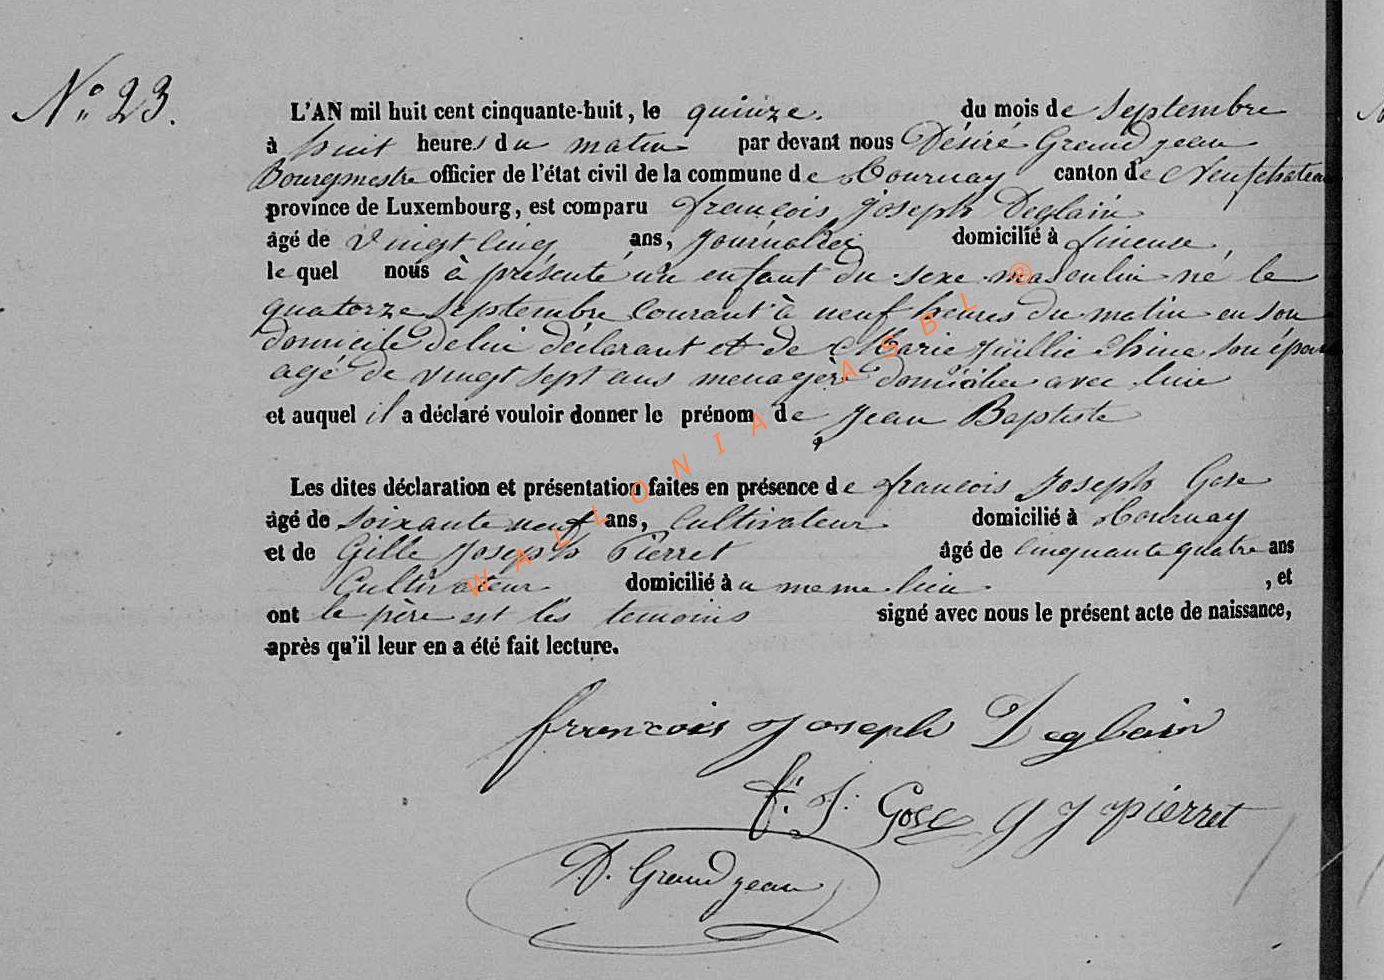 N° 23.
L'AN mil huit cent cinquante-huit, le quinze. du mois de Septembre
à huit heures du matin par devant nous Désiré Grandjean
Bourgmestre officier de l'état civil de la commune de Tournay canton de Neufchateau
province de Luxembourg, est comparu françois joseph Deglain
âgé de vingt cinq ans, journalier domicilié à fineuse,
le quel nous à présenté un enfant du sexe masculin né le
quatorze Septembre courant à neuf heures du matin en son
domicile de lui déclarant et de Marie Chine son épouse
agé de vingt sept ans menagère domiciliée avec luie
et auquel il a déclaré vouloir donner le prénom de Jean Baptiste
Les dites déclaration et présentation faites en présence de francois Joseph Gose
âgé de soixante neuf ans, cultivateur domicilié à Tournay
et de Gille Joseph Pierret âgé de cinquante quatre ans
Cultivateur domicilié àu meme lieu , et
ont le père est les temoins signé avec nous le présent acte de naissance,
après qu'il leur en a été fait lecture.
françois Joseph Deglain
f. J. Gose G J pierret
D. Grandjean
WALLONIA ASBL ®